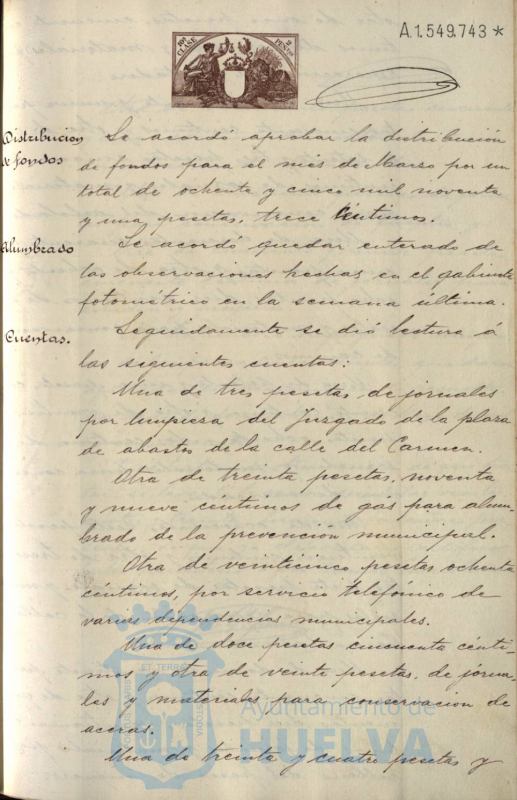 A.1.549.743 *
10ª CLASE
Distribucion
de fondos
Se acordó aprobar la distribución
de fondos para el més de Marzo por un
total de ochenta y cinco mil noventa
y una pesetas, trece céntimos.
Alumbrado
Se acordó quedar enterado de
las observaciones hechas en el gabinete
fotométrico en la semana última.
Cuentas.
Seguidamente se dió lectura á
las siguientes cuentas:
Una de tres pesetas de jornales
por limpieza del Juzgado de la plaza
de abastos de la calle del Carmen.
Otra de treinta pesetas, noventa
y nueve céntimos de gás para alum-
brado de la prevención municipal.
Otra de veinticinco pesetas ochenta
céntimos, por servicio telefónico de
varias dependencias municipales.
Una de doce pesetas cincuenta cénti-
mos y otra de veinte pesetas, de jorna-
les y materiales para conservacion de
aceras.
Una de treinta y cuatro pesetas y
Ayuntamiento de
HUELVA